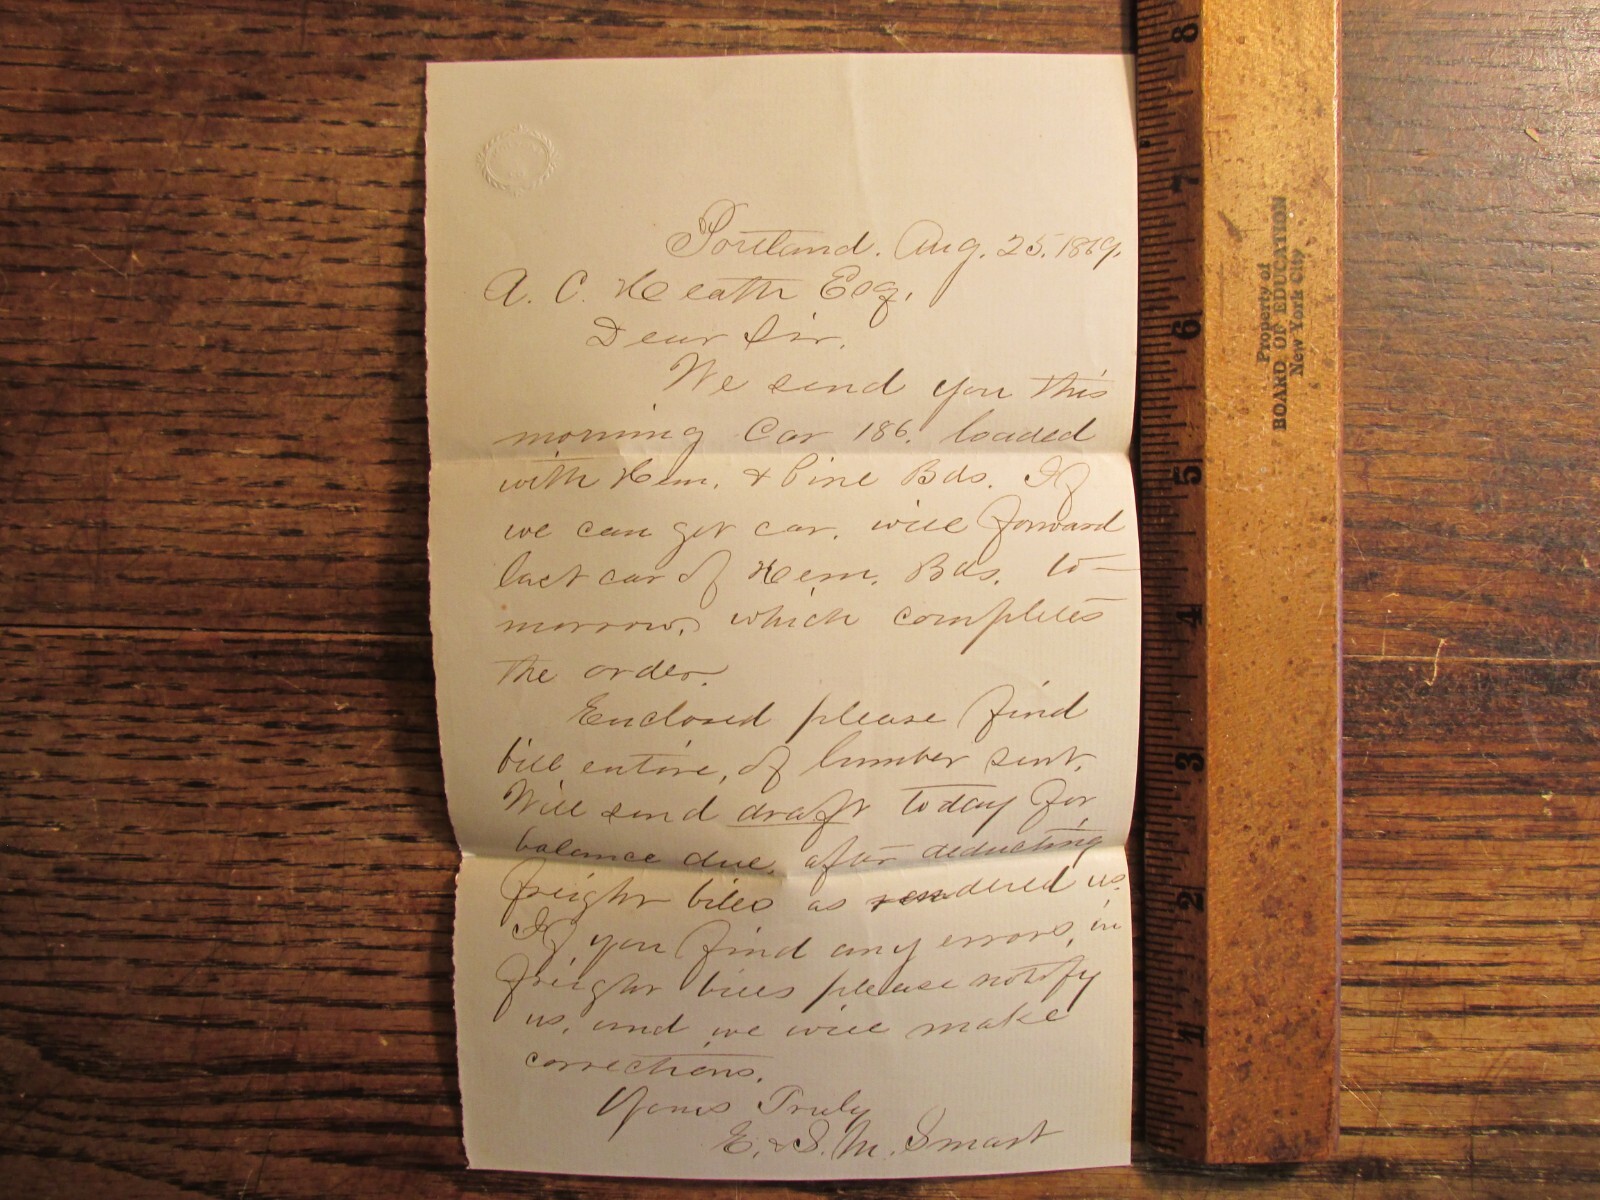 Portland. Aug. 25. 1869.
A. C. Heath Esq.
Dear Sir.
We send you this
morning Car 186. loaded
with Hem. & Pine Bds. If
we can get car. will forward
last car of Hem. Bds. to-
morrow, which completes
the order.
Enclosed please find
bill entire, of lumber sent.
Will send draft today for
balance due, after deducting
freight bills as rendered us.
If you find any errors, in
freight bills please notify
us, and we will make
corrections.
Yours Truly
E. & S. M. Smart
8
7
6
5
4
3
2
1
Property of
BOARD OF EDUCATION
New York City